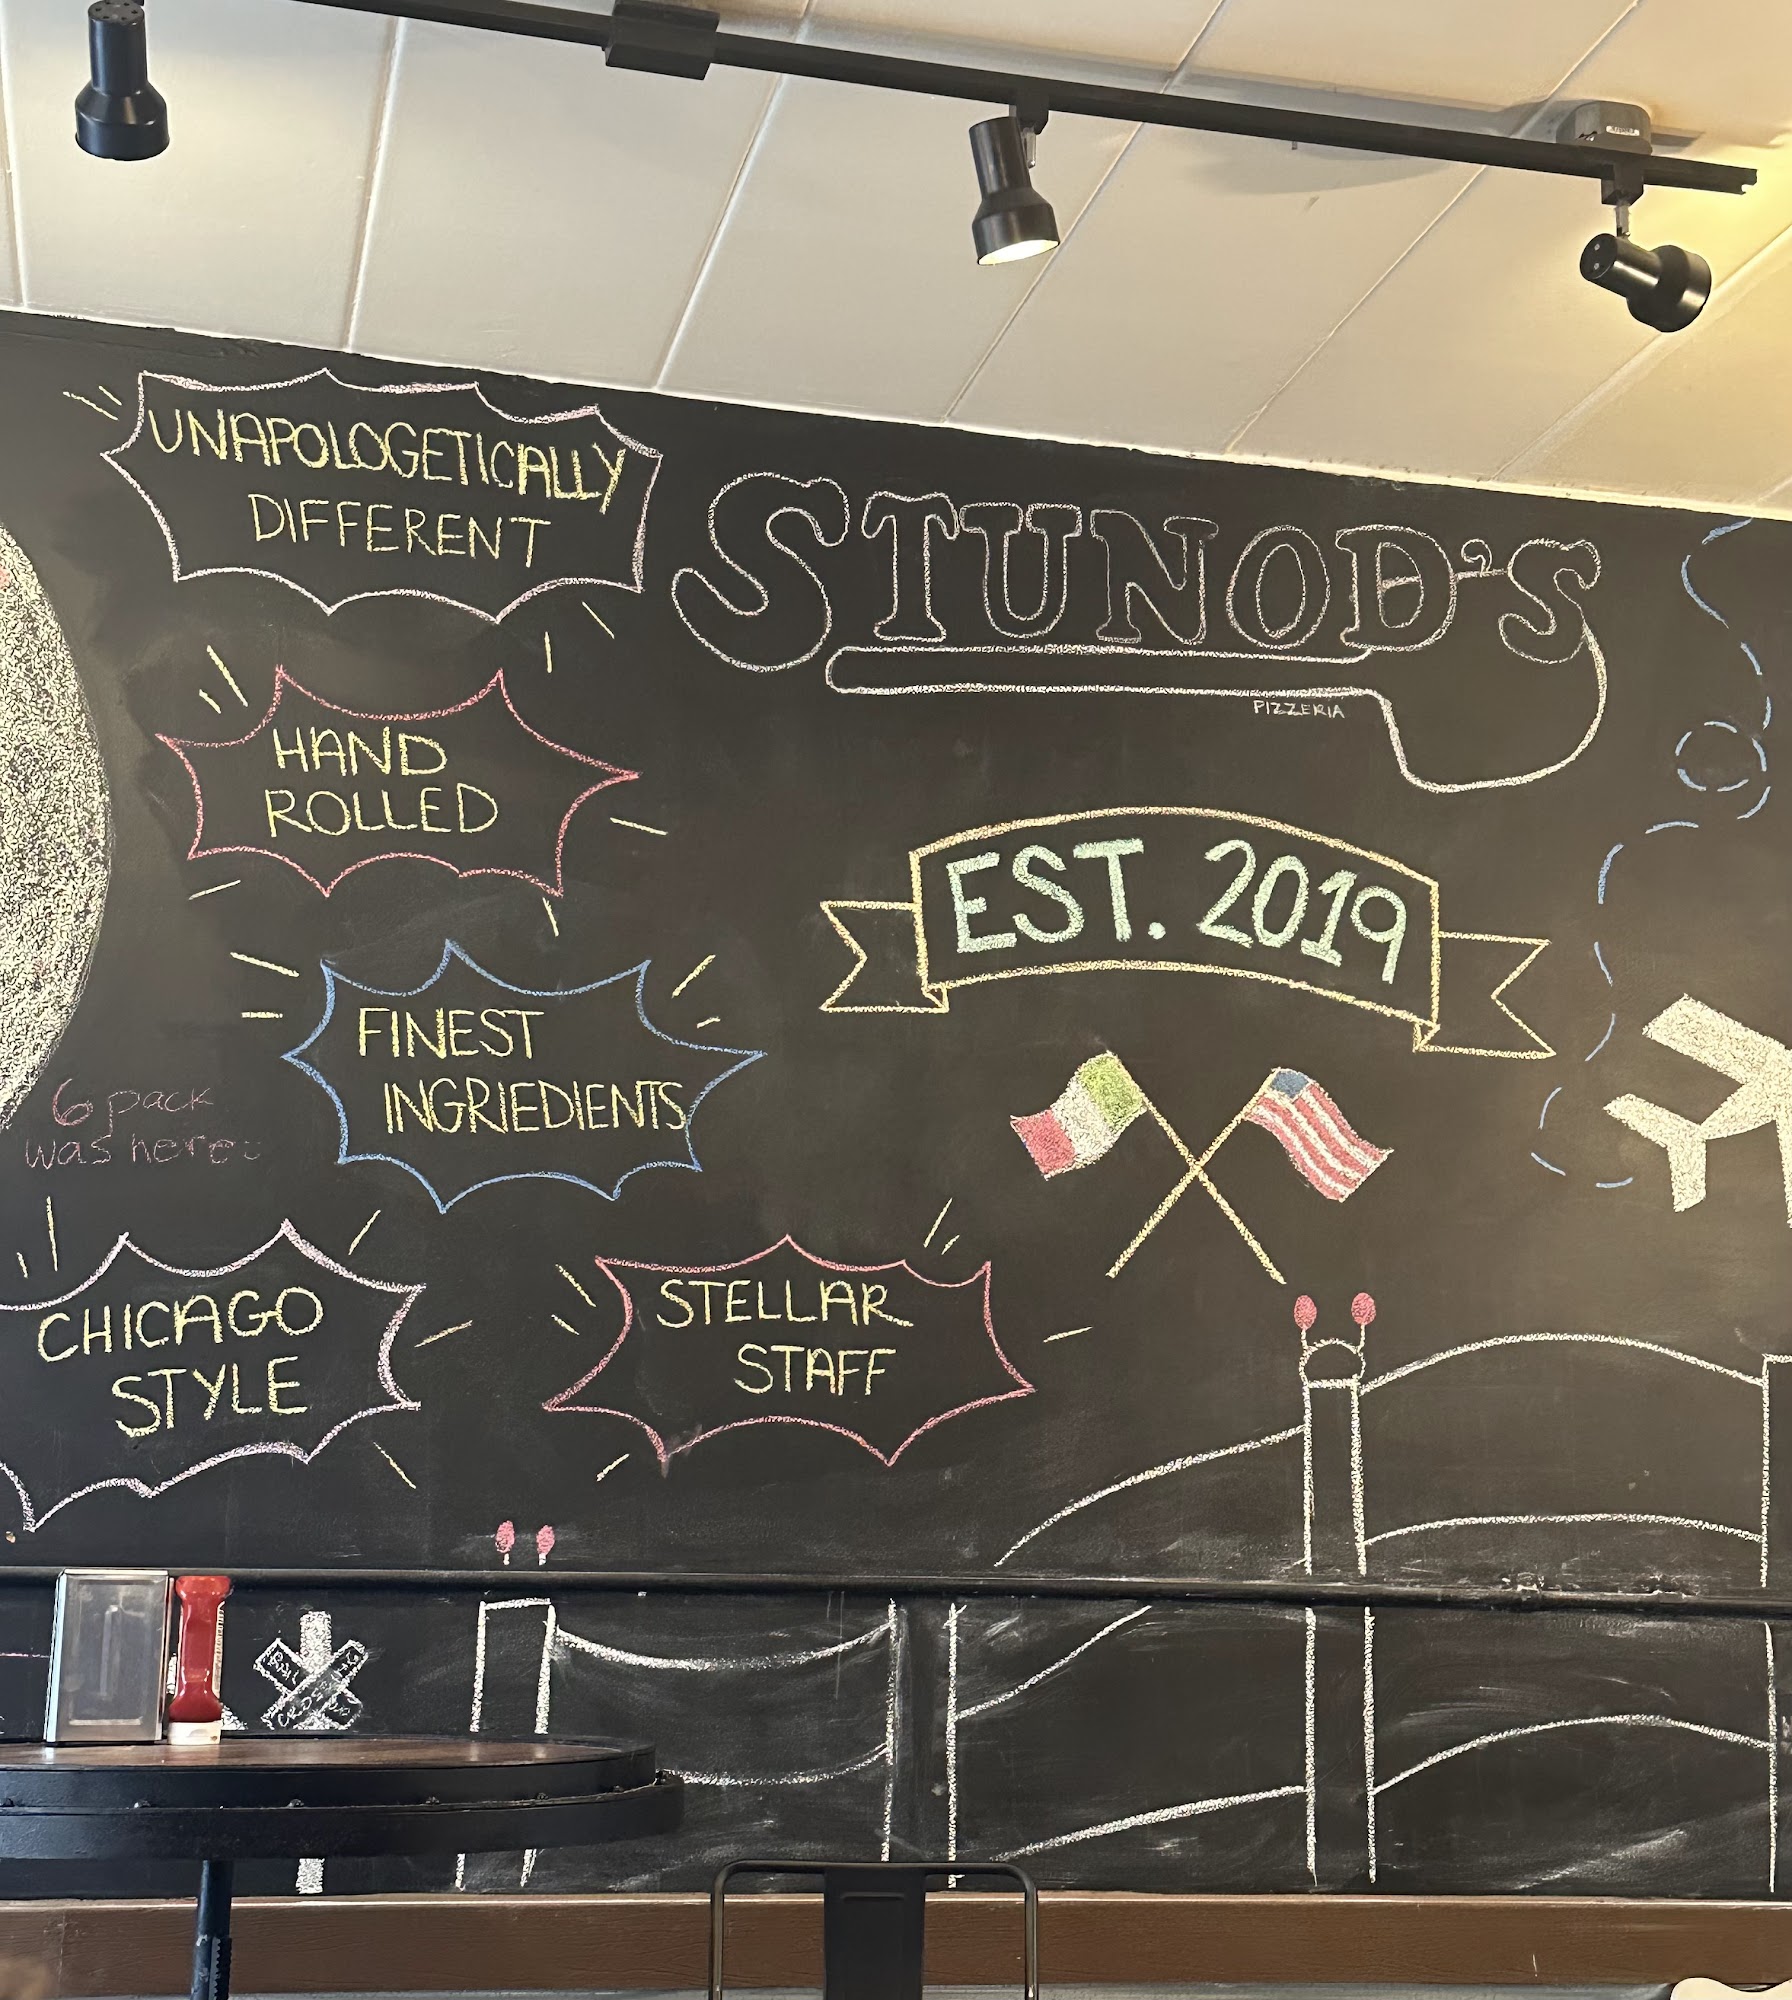 UNAPOLOGETICALLY
DIFFERENT
STUNOD'S
PIZZERIA
HAND
ROLLED
EST. 2019
FINEST
INGRIEDIENTS
6 pack
was here
CHICAGO
STYLE
STELLAR
STAFF